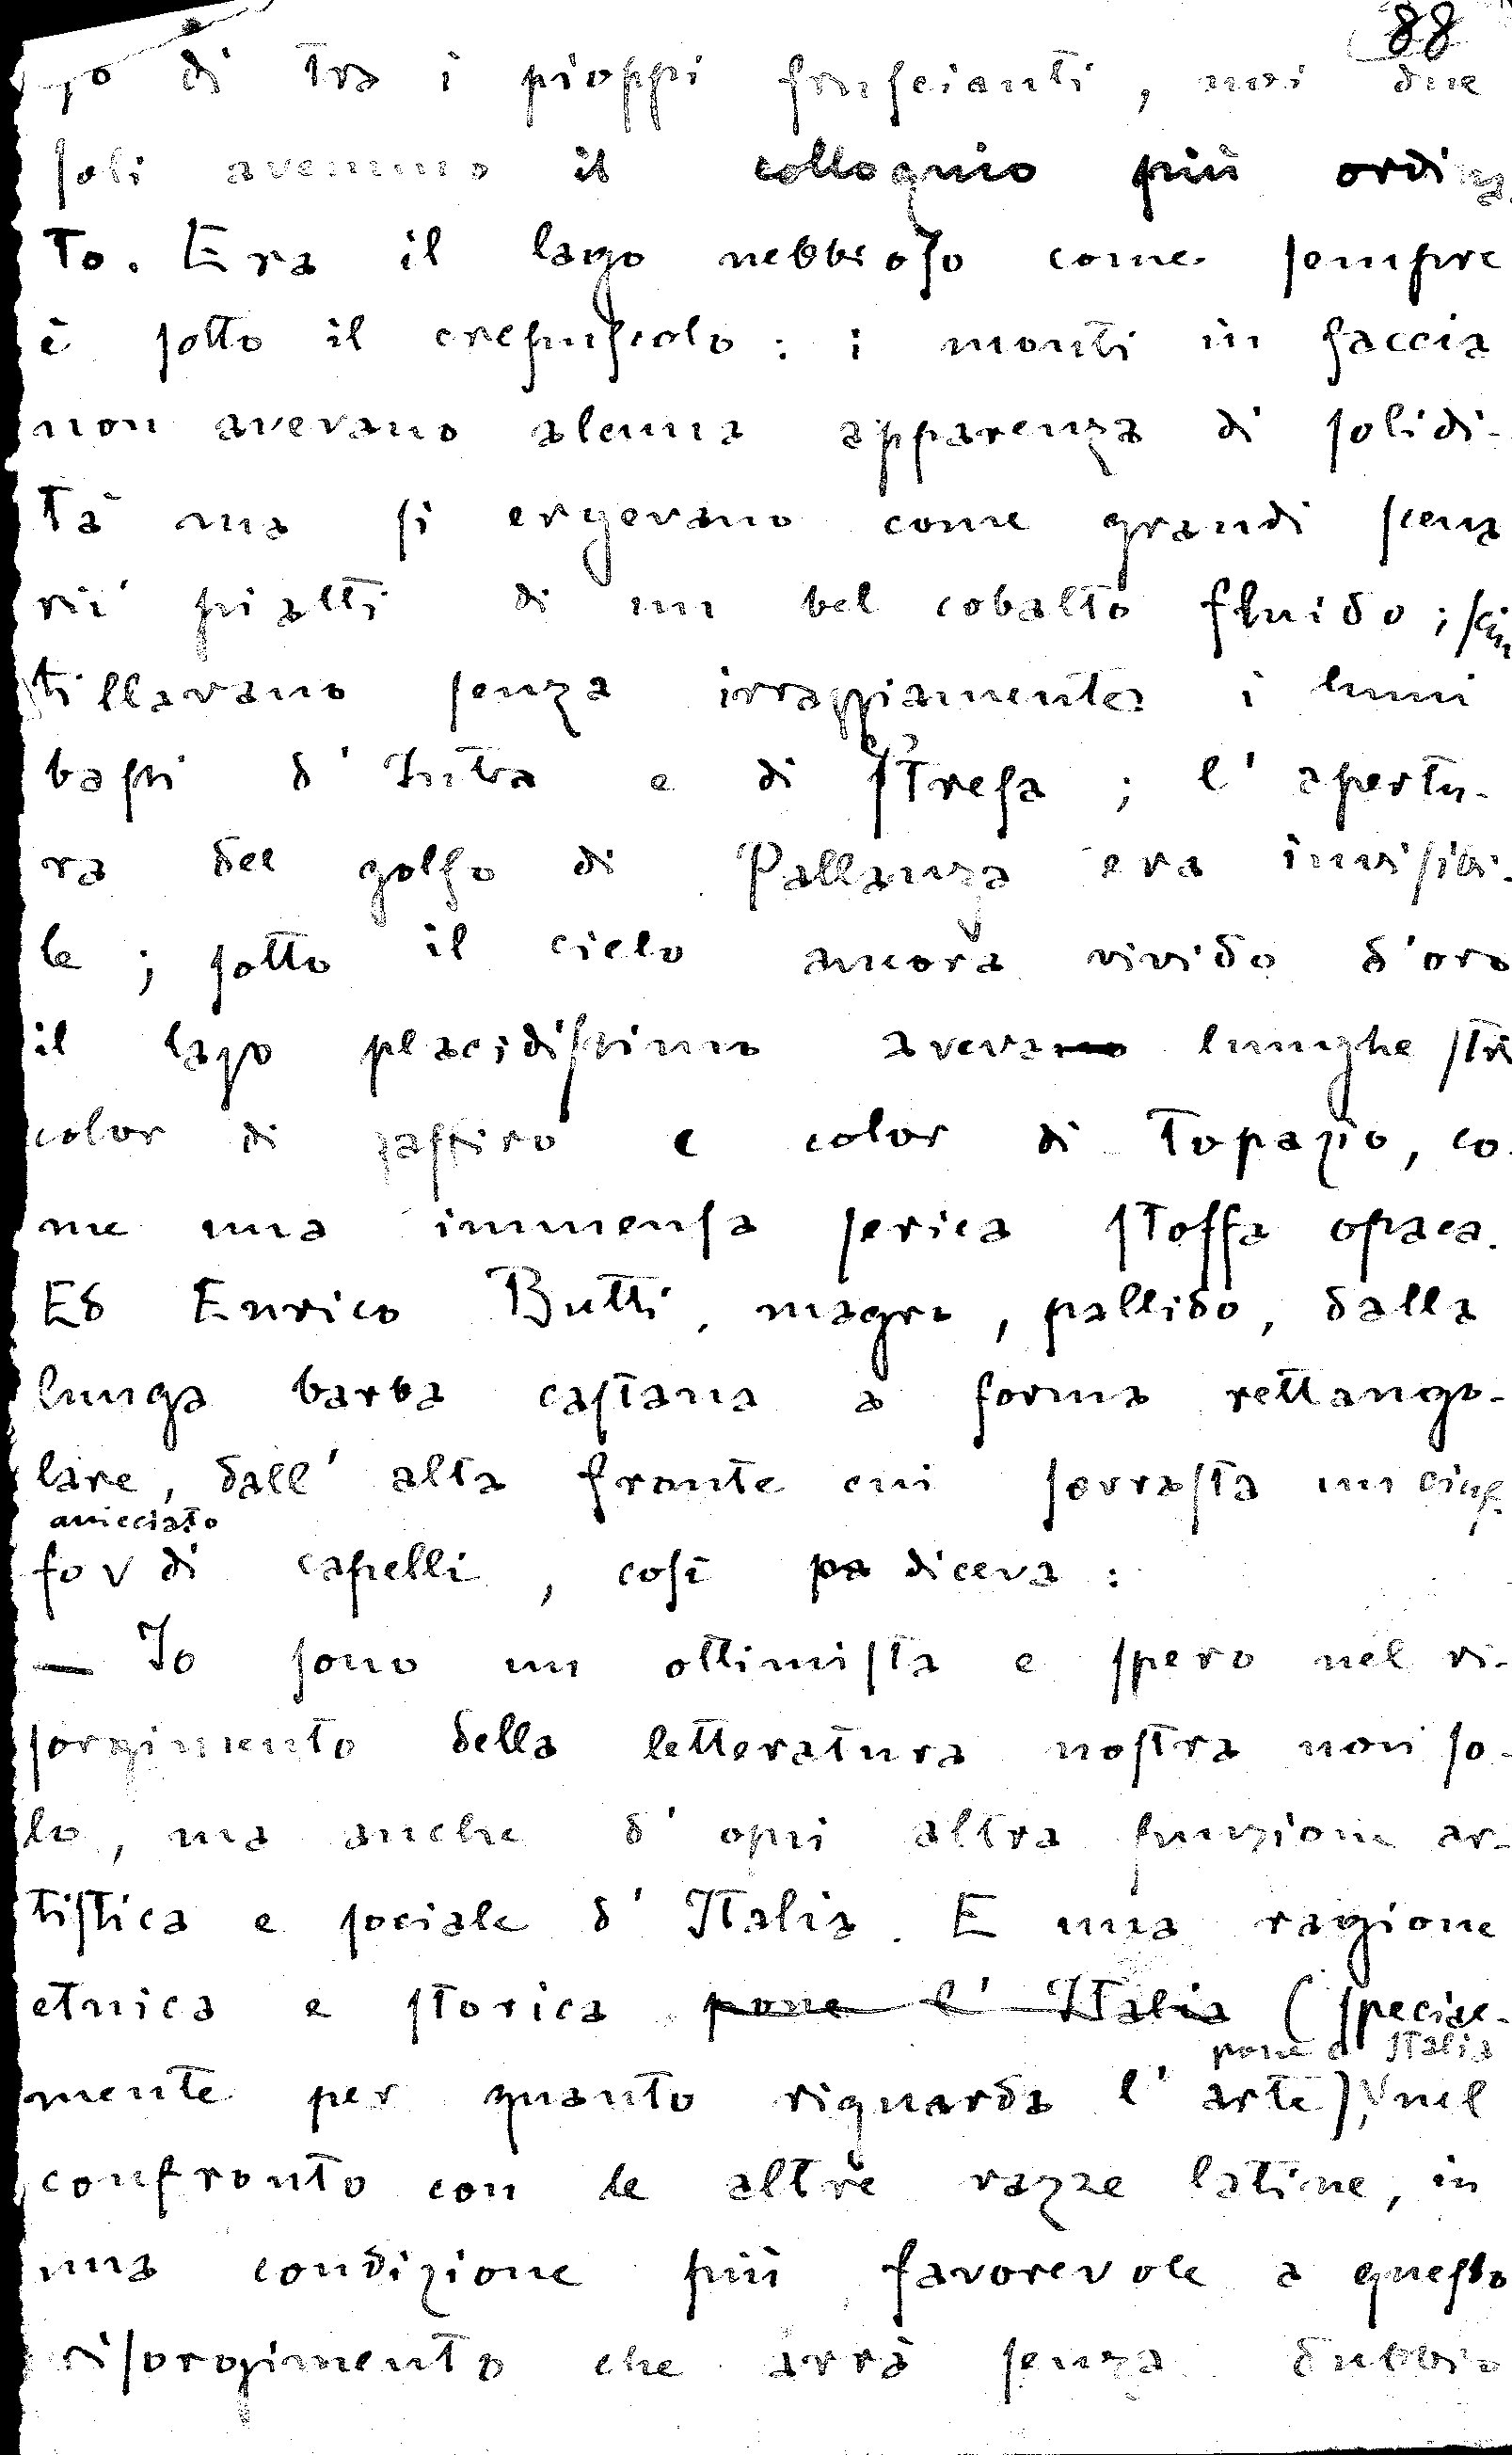 88
go di tra i pioppi fruscianti, noi due
soli avemmo il colloquio più ordina
to. Era il lago nebbioso come sempre
è sotto il crepuscolo: i monti in faccia
non avevano alcuna apparenza di solidi-
tà ma si ergevano come grandi scena
rii piatti di un bel cobalto fluido; scin
tillavano senza irraggiamento i lumi
bassi d'Intra e di Stresa; l'apertu-
ra del golfo di Pallanza era invisibi-
le; sotto il cielo ancora vivido d'oro
il lago placidissimo aveva lunghe stri
color di zaffiro e color di topazio, co-
me una immensa serica stoffa opaca.
Ed Enrico Butti, magro, pallido, dalla
lunga barba castana a forma rettango-
lare, dall'alta fronte cui sovrasta un ciuf-
aricciato
fo v di capelli, così pa diceva:
— Io sono un ottimista e spero nel ri-
sorgimento della letteratura nostra non so-
lo, ma anche d'ogni altra funzione ar-
tistica e sociale d'Italia. E una ragione
etnica e storica pone l'Italia (special-
pone l'Italia
mente per quanto riguarda l'arte), v nel
confronto con le altre razze latine, in
una condizione più favorevole a questo
risorgimento che avrà senza dubbio